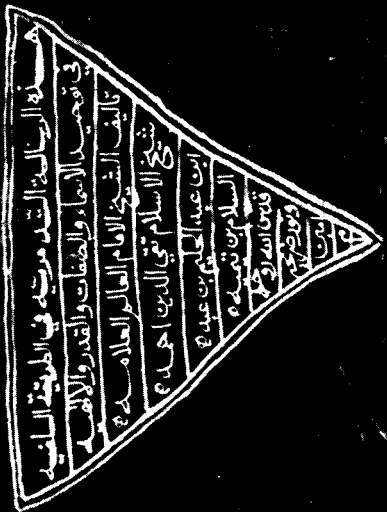 هذه الرسالة التدمرية في الطريقة السلفية
في توحيد الاسماء والصفات والقدر والالهيه
تاليف الشيخ الامام العالم العلامه
شيخ الاسلام تقي الدين احمد
ابن عبد الحليم بن عبد
السلام بن تيميه
قدس الله روحه
ونور ضريحه
امين
م